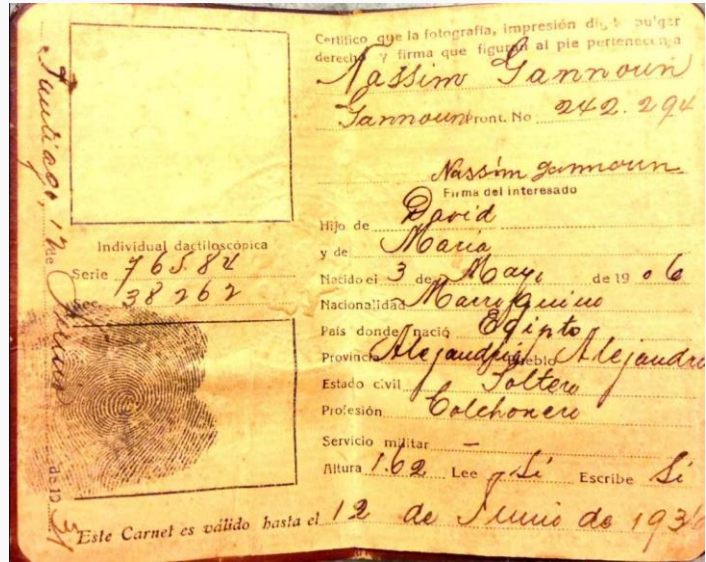 Santiago, 12 de Junio de 1931
Individual dactiloscópica
Serie 76584
Sec. 38262
Certifico que la fotografía, impresión dig. pulgar
derecho y firma que figuran al pie pertenecen a
Nassim Gannoun
Gannoun Pront. No 242.294
Nassim Gannoun
Firma del interesado
Hijo de David
y de María
Nacido el 3 de Mayo de 1906
Nacionalidad Marroquino
País donde nació Egipto
Provincia Alejandría Pueblo Alejandría
Estado civil Soltero
Profesión Colchonero
Servicio militar —
Altura 1.62 Lee Sí Escribe Sí
Este Carnet es válido hasta el 12 de Junio de 193